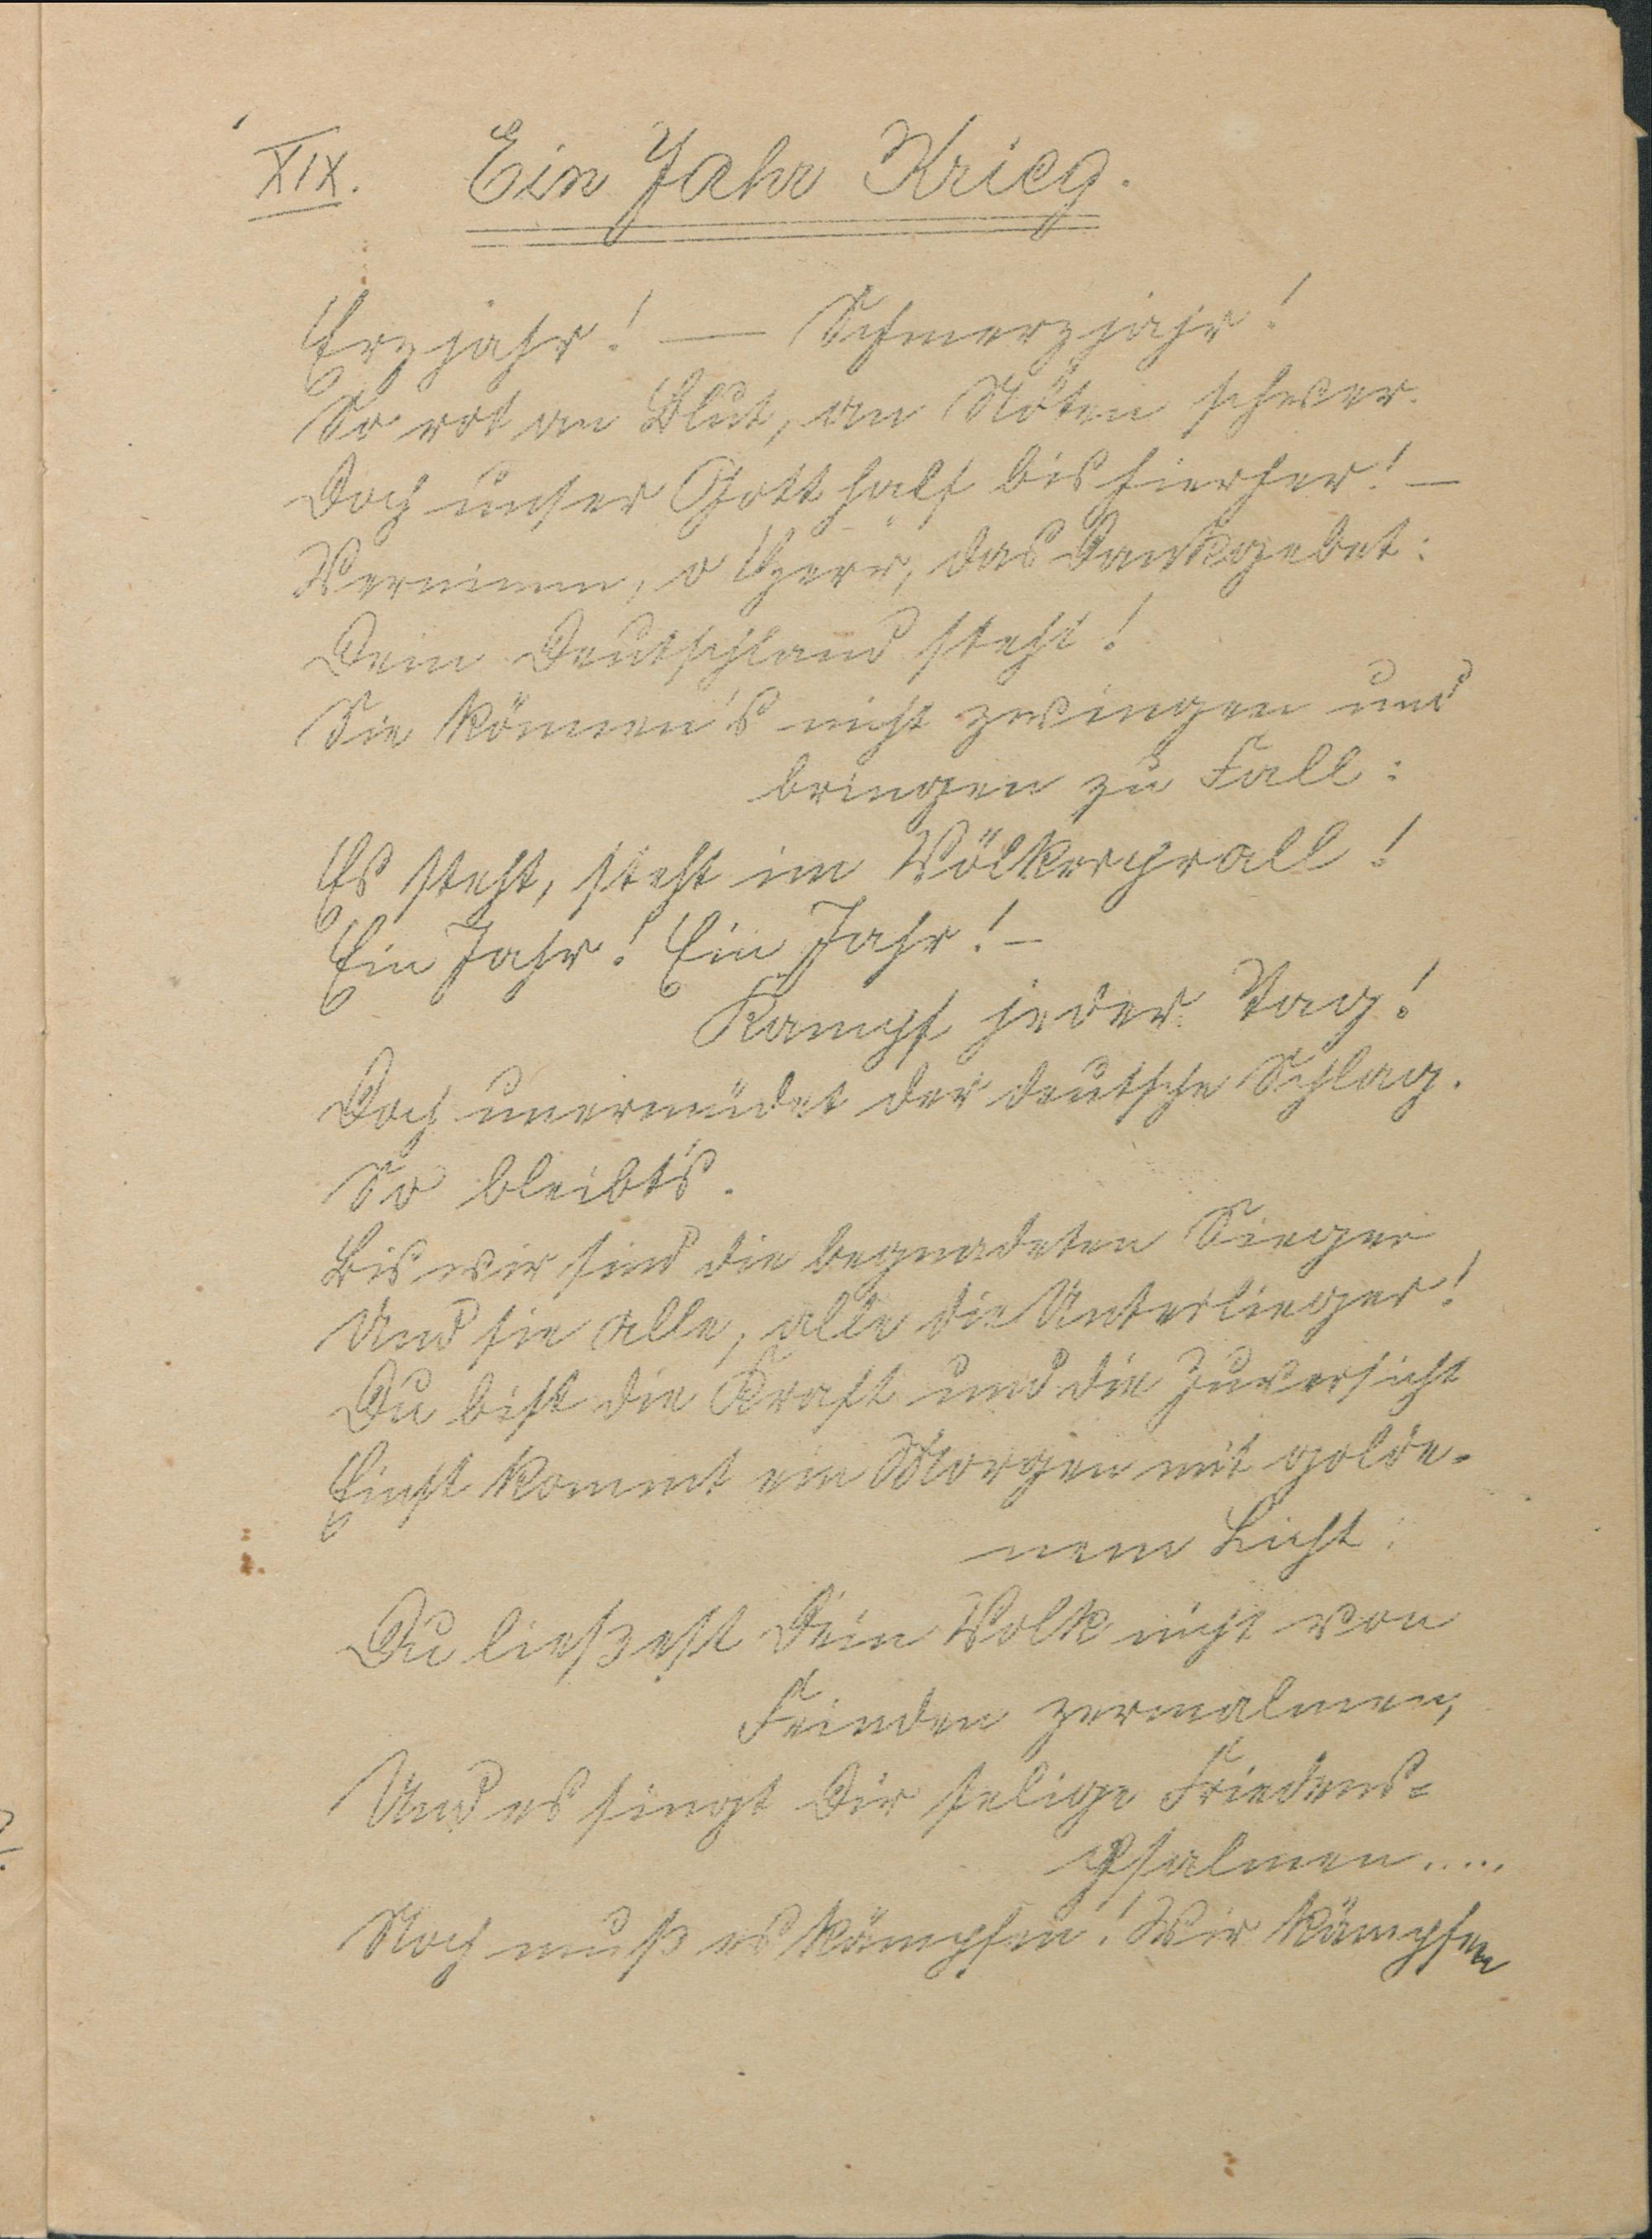 XIX. Ein Jahr Krieg.
Erzjahr! — Schmerzjahr!
So rot an Blut, an Nöten schwer.
Doch unser Gott half bis hierher! —
Vernimm, o Herr, das Dankgebet:
Dein Deutschland steht!
Sie können's nicht zwingen und
bringen zu Fall:
Es steht, steht im Völkerprall!
Ein Jahr! Ein Jahr! —
Kampf jeder Tag!
Doch unermüdet der deutsche Schlag.
So bleibt's.
Bis wir sind die begnadeten Sieger
Und sie alle, alle die Unterlieger!
Du bist die Kraft und die Zuversicht
Einst kommt ein Morgen mit golde-
nem Licht:
Du ließest Dein Volk nicht von
Feinden zermalmen,
Und es singt Dir selige Friedens-
psalmen.....
Noch muß es kämpfen! Wir kämpfen